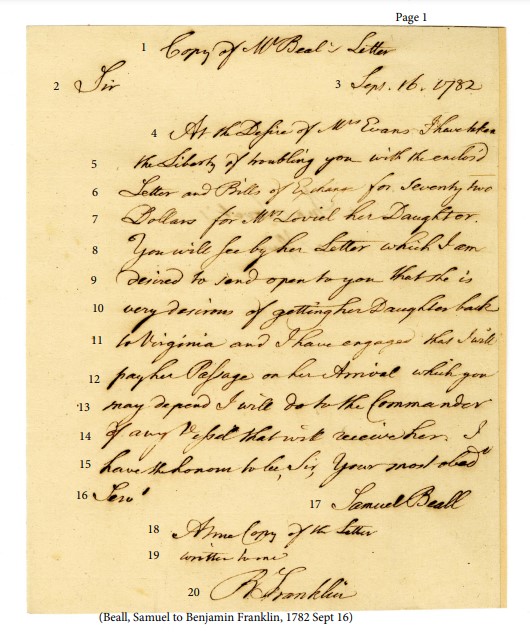 Page 1
1 Copy of Mr Beal's Letter
2 Sir 3 Sept. 16. 1782
4 At the Desire of Mrs Evans I have taken
5 the Liberty of troubling you with the enclos'd
6 Letter and Bills of Exchane for Seventy two
7 Dollars for Mrs Loviel her Daughter.
8 You will see by her Letter which I am
9 desired to send open to you that she is
10 very desirous of getting her Daughter back
11 to Virginia and I have engaged that I will
12 pay her Passage on her Arrival which you
13 may depend I will do to the Commander
14 of any Vessel that will receive her. I
15 have the honour to be, Sir, Your most obedt
16 Servt
17 Samuel Beall
18 A true Copy of the Letter
19 written to me
20 B Franklin
(Beall, Samuel to Benjamin Franklin, 1782 Sept 16)